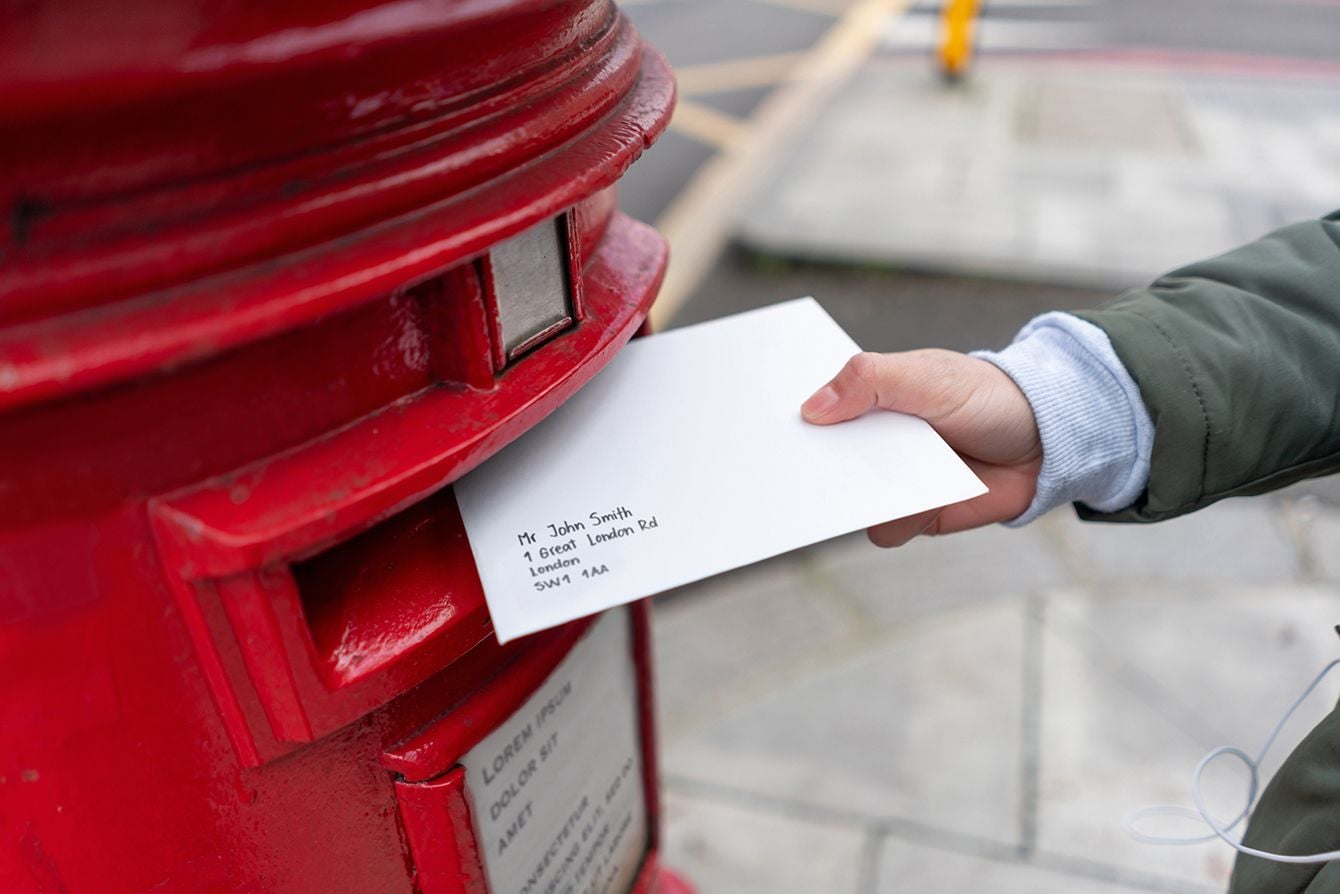 Mr John Smith
1 Great London Rd
London
SW1 1AA
LOREM IPSUM
DOLOR SIT
AMET
ONSECTETUR
ISCING ELIT, SED DO
TEMPOR